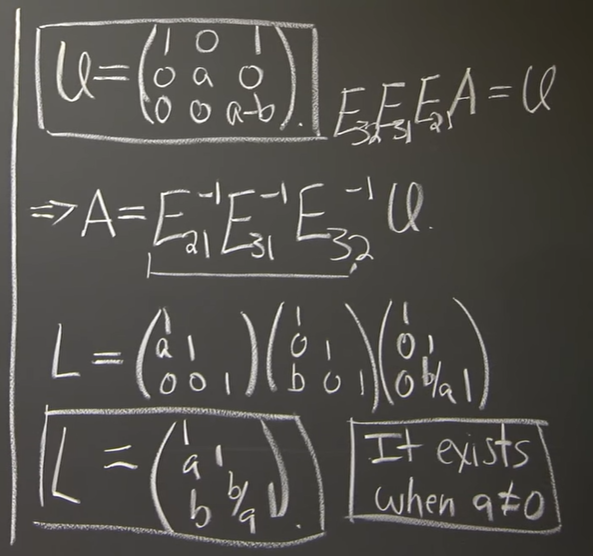 U = ( 1 0 1
0 a 0
0 0 a-b ).
E₃₂E₃₁E₂₁A = U
=> A = E₂₁⁻¹ E₃₁⁻¹ E₃₂⁻¹ U.
L = ( 1
a 1
0 0 1 ) ( 1
0 1
b 0 1 ) ( 1
0 1
0 b/a 1 )
L = ( 1
a 1
b b/a 1 ).
It exists
when a≠0